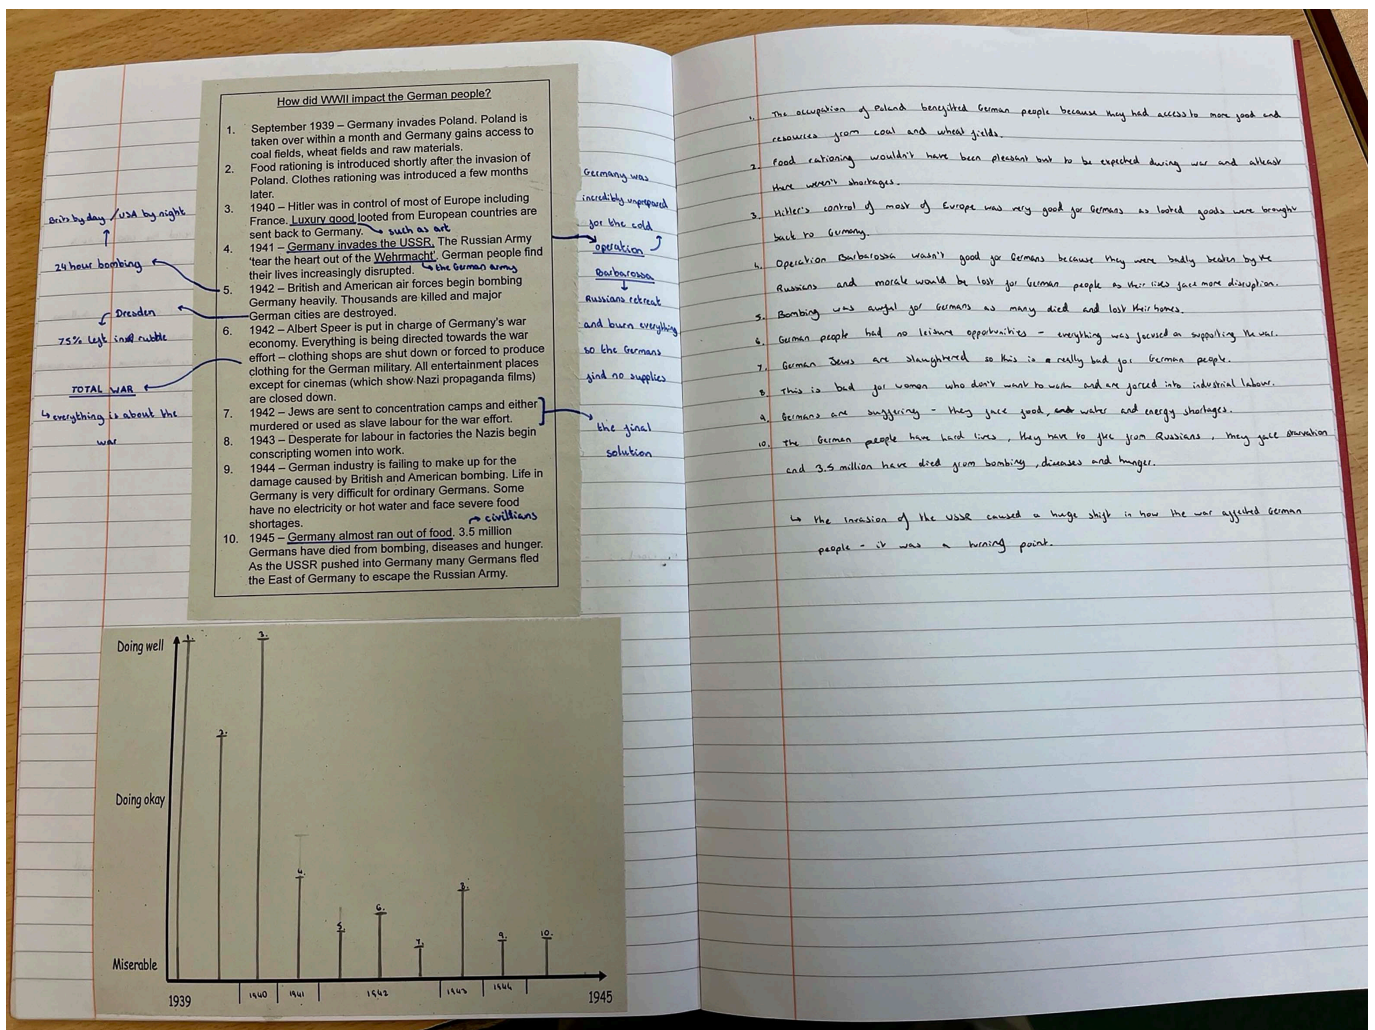 How did WWII impact the German people?
1. September 1939 – Germany invades Poland. Poland is
taken over within a month and Germany gains access to
coal fields, wheat fields and raw materials.
2. Food rationing is introduced shortly after the invasion of
Poland. Clothes rationing was introduced a few months
later.
3. 1940 – Hitler was in control of most of Europe including
France. Luxury good looted from European countries are
sent back to Germany.
such as art
4. 1941 – Germany invades the USSR. The Russian Army
'tear the heart out of the Wehrmacht'. German people find
their lives increasingly disrupted.
the German army
5. 1942 – British and American air forces begin bombing
Germany heavily. Thousands are killed and major
German cities are destroyed.
6. 1942 – Albert Speer is put in charge of Germany's war
economy. Everything is being directed towards the war
effort – clothing shops are shut down or forced to produce
clothing for the German military. All entertainment places
except for cinemas (which show Nazi propaganda films)
are closed down.
7. 1942 – Jews are sent to concentration camps and either
murdered or used as slave labour for the war effort.
8. 1943 – Desperate for labour in factories the Nazis begin
conscripting women into work.
9. 1944 – German industry is failing to make up for the
damage caused by British and American bombing. Life in
Germany is very difficult for ordinary Germans. Some
have no electricity or hot water and face severe food
shortages.
civillians
10. 1945 – Germany almost ran out of food. 3.5 million
Germans have died from bombing, diseases and hunger.
As the USSR pushed into Germany many Germans fled
the East of Germany to escape the Russian Army.
Brits by day / USA by night
24 hour bombing
Dresden
75% left in rubble
TOTAL WAR
↳ everything is about the
war
Germany was
incredibly unprepared
for the cold
operation
Barbarossa
Russians retreat
and burn everything
so the Germans
find no supplies
the final
solution
Doing well
Doing okay
Miserable
1. 2. 3. 4. 5. 6. 7. 8. 9. 10.
1939 1940 1941 1942 1943 1944 1945
1. The occupation of Poland benefitted German people because they had access to more food and
resources from coal and wheat fields.
2. Food rationing wouldn't have been pleasant but to be expected during war and atleast
there weren't shortages.
3. Hitler's control of most of Europe was very good for Germans as looted goods were brought
back to Germany.
4. Operation Barbarossa wasn't good for Germans because they were badly beaten by the
Russians and morale would be lost for German people as their lives face more disruption.
5. Bombing was awful for Germans as many died and lost their homes.
6. German people had no leisure opportunities - everything was focused on supporting the war.
7. German Jews are slaughtered so this is a really bad for German people.
8. This is bad for women who don't want to work and are forced into industrial labour.
9. Germans are suffering - they face food, water and energy shortages.
10. The German people have hard lives, they have to flee from Russians, they face starvation
and 3.5 million have died from bombing, diseases and hunger.
↳ the invasion of the USSR caused a huge shift in how the war affected German
people - it was a turning point.